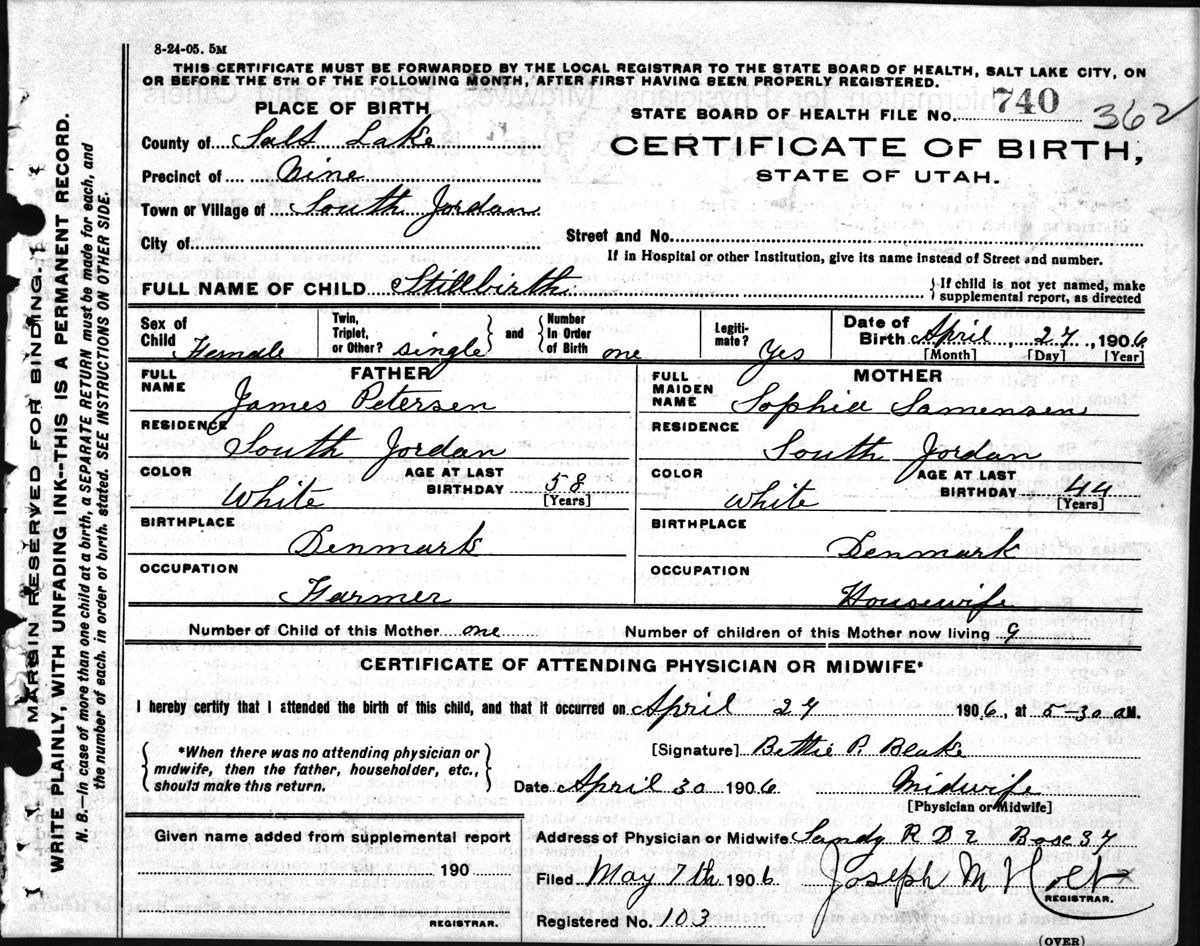 8-24-05. 5M
THIS CERTIFICATE MUST BE FORWARDED BY THE LOCAL REGISTRAR TO THE STATE BOARD OF HEALTH, SALT LAKE CITY, ON
OR BEFORE THE 5TH OF THE FOLLOWING MONTH, AFTER FIRST HAVING BEEN PROPERLY REGISTERED.
PLACE OF BIRTH
STATE BOARD OF HEALTH FILE No. 740 362
County of Salt Lake
CERTIFICATE OF BIRTH,
STATE OF UTAH.
Precinct of Nine
Town or Village of South Jordan
City of
Street and No.
If in Hospital or other Institution, give its name instead of Street and number.
FULL NAME OF CHILD Stillbirth
If child is not yet named, make
supplemental report, as directed
Sex of Child Female
Twin, Triplet, or Other? single
and Number In Order of Birth one
Legitimate? Yes
Date of Birth April, 27, 1906
[Month] [Day] [Year]
FATHER
FULL NAME
James Petersen
RESIDENCE
South Jordan
COLOR
White
AGE AT LAST BIRTHDAY 58
[Years]
BIRTHPLACE
Denmark
OCCUPATION
Farmer
MOTHER
FULL MAIDEN NAME
Sophia Samensen
RESIDENCE
South Jordan
COLOR
White
AGE AT LAST BIRTHDAY 44
[Years]
BIRTHPLACE
Denmark
OCCUPATION
Housewife
Number of Child of this Mother one
Number of children of this Mother now living 9
CERTIFICATE OF ATTENDING PHYSICIAN OR MIDWIFE*
I hereby certify that I attended the birth of this child, and that it occurred on April 27 1906, at 5-30 a M.
*When there was no attending physician or
midwife, then the father, householder, etc.,
should make this return.
[Signature] Bettie P. Blake
Date April 30 1906 Midwife
[Physician or Midwife]
Given name added from supplemental report
190
REGISTRAR.
Address of Physician or Midwife Sandy R D 2 Box 37
Filed May 7th 1906 Joseph M Holt
REGISTRAR.
Registered No. 103
(OVER)
MARGIN RESERVED FOR BINDING.
WRITE PLAINLY, WITH UNFADING INK--THIS IS A PERMANENT RECORD.
N. B.—In case of more than one child at a birth, a SEPARATE RETURN must be made for each, and
the number of each, in order of birth, stated. SEE INSTRUCTIONS ON OTHER SIDE.